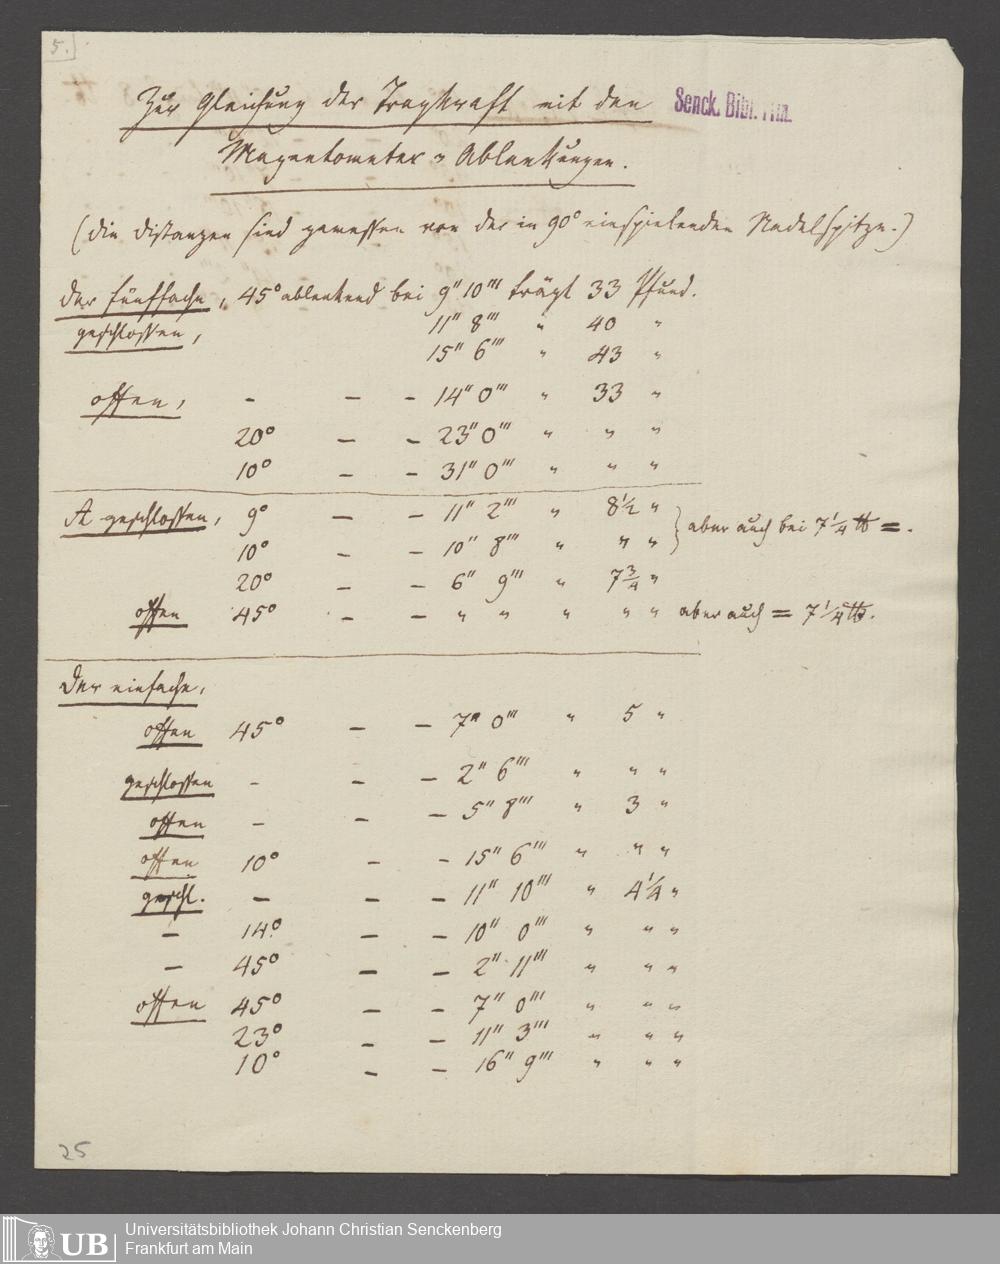 5.
Zur Gleichung der Tragkraft mit den
Senck. Bibl. Ffm.
Magnetometer-Ablenkungen.
(die Distanzen sind gemessen von der in 90° einspielenden Nadelspitze.)
Der fünffache, 45° ablenkend bei 9" 10''' trägt 33 Pfund.
geschlossen, 11" 8''' " 40 "
15" 6''' " 43 "
offen, - - - 14" 0''' " 33 "
20° - - 23" 0''' " " "
10° - - 31" 0''' " " "
A geschlossen, 9° - - 11" 2''' " 8 1/2 "
10° - - 10" 8''' " " " } aber auch bei 7 1/4 ℔ =.
20° - - 6" 9''' " 7 3/4 "
offen 45° - - " " " " " aber auch = 7 1/4 ℔.
Der einfache,
offen 45° - - 7" 0''' " 5 "
geschlossen - - - 2" 6''' " " "
offen - - - 5" 8''' " 3 "
offen 10° - - 15" 6''' " " "
geschl. - - - 11" 10''' " 4 1/4 "
- 14° - - 10" 0''' " " "
- 45° - - 2" 11''' " " "
offen 45° - - 7" 0''' " " "
23° - - 11" 3''' " " "
10° - - 16" 9''' " " "
25
UB
Universitätsbibliothek Johann Christian Senckenberg
Frankfurt am Main